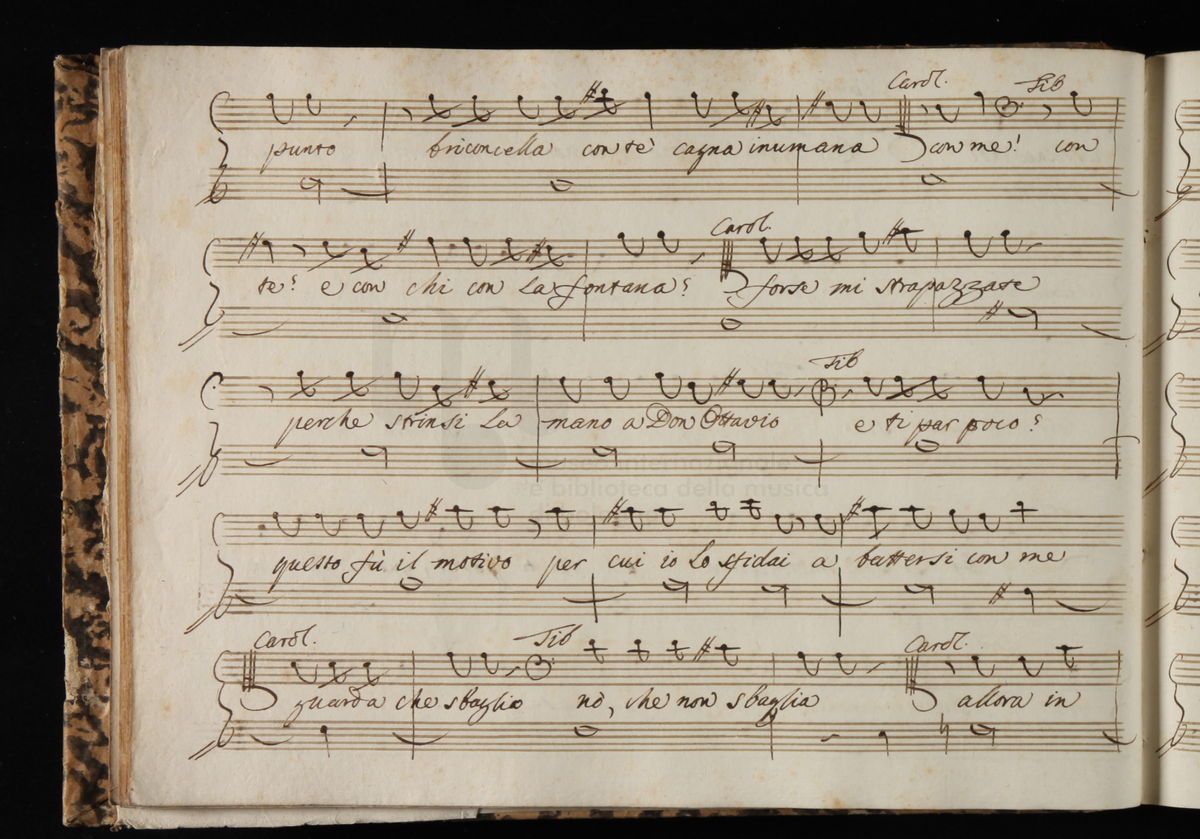 Carol. Tib
punto briconcella con te cagna inumana con me! con
Carol.
te? e con chi con la fontana? forse mi strapazzate
Tib
perche strinsi la mano a Don Ottavio e ti par poco?
e biblioteca della musica
questo fù il motivo per cui io lo sfidai a battersi con me
Carol. Tib Carol.
guarda che sbaglio nò, che non sbaglia allora in